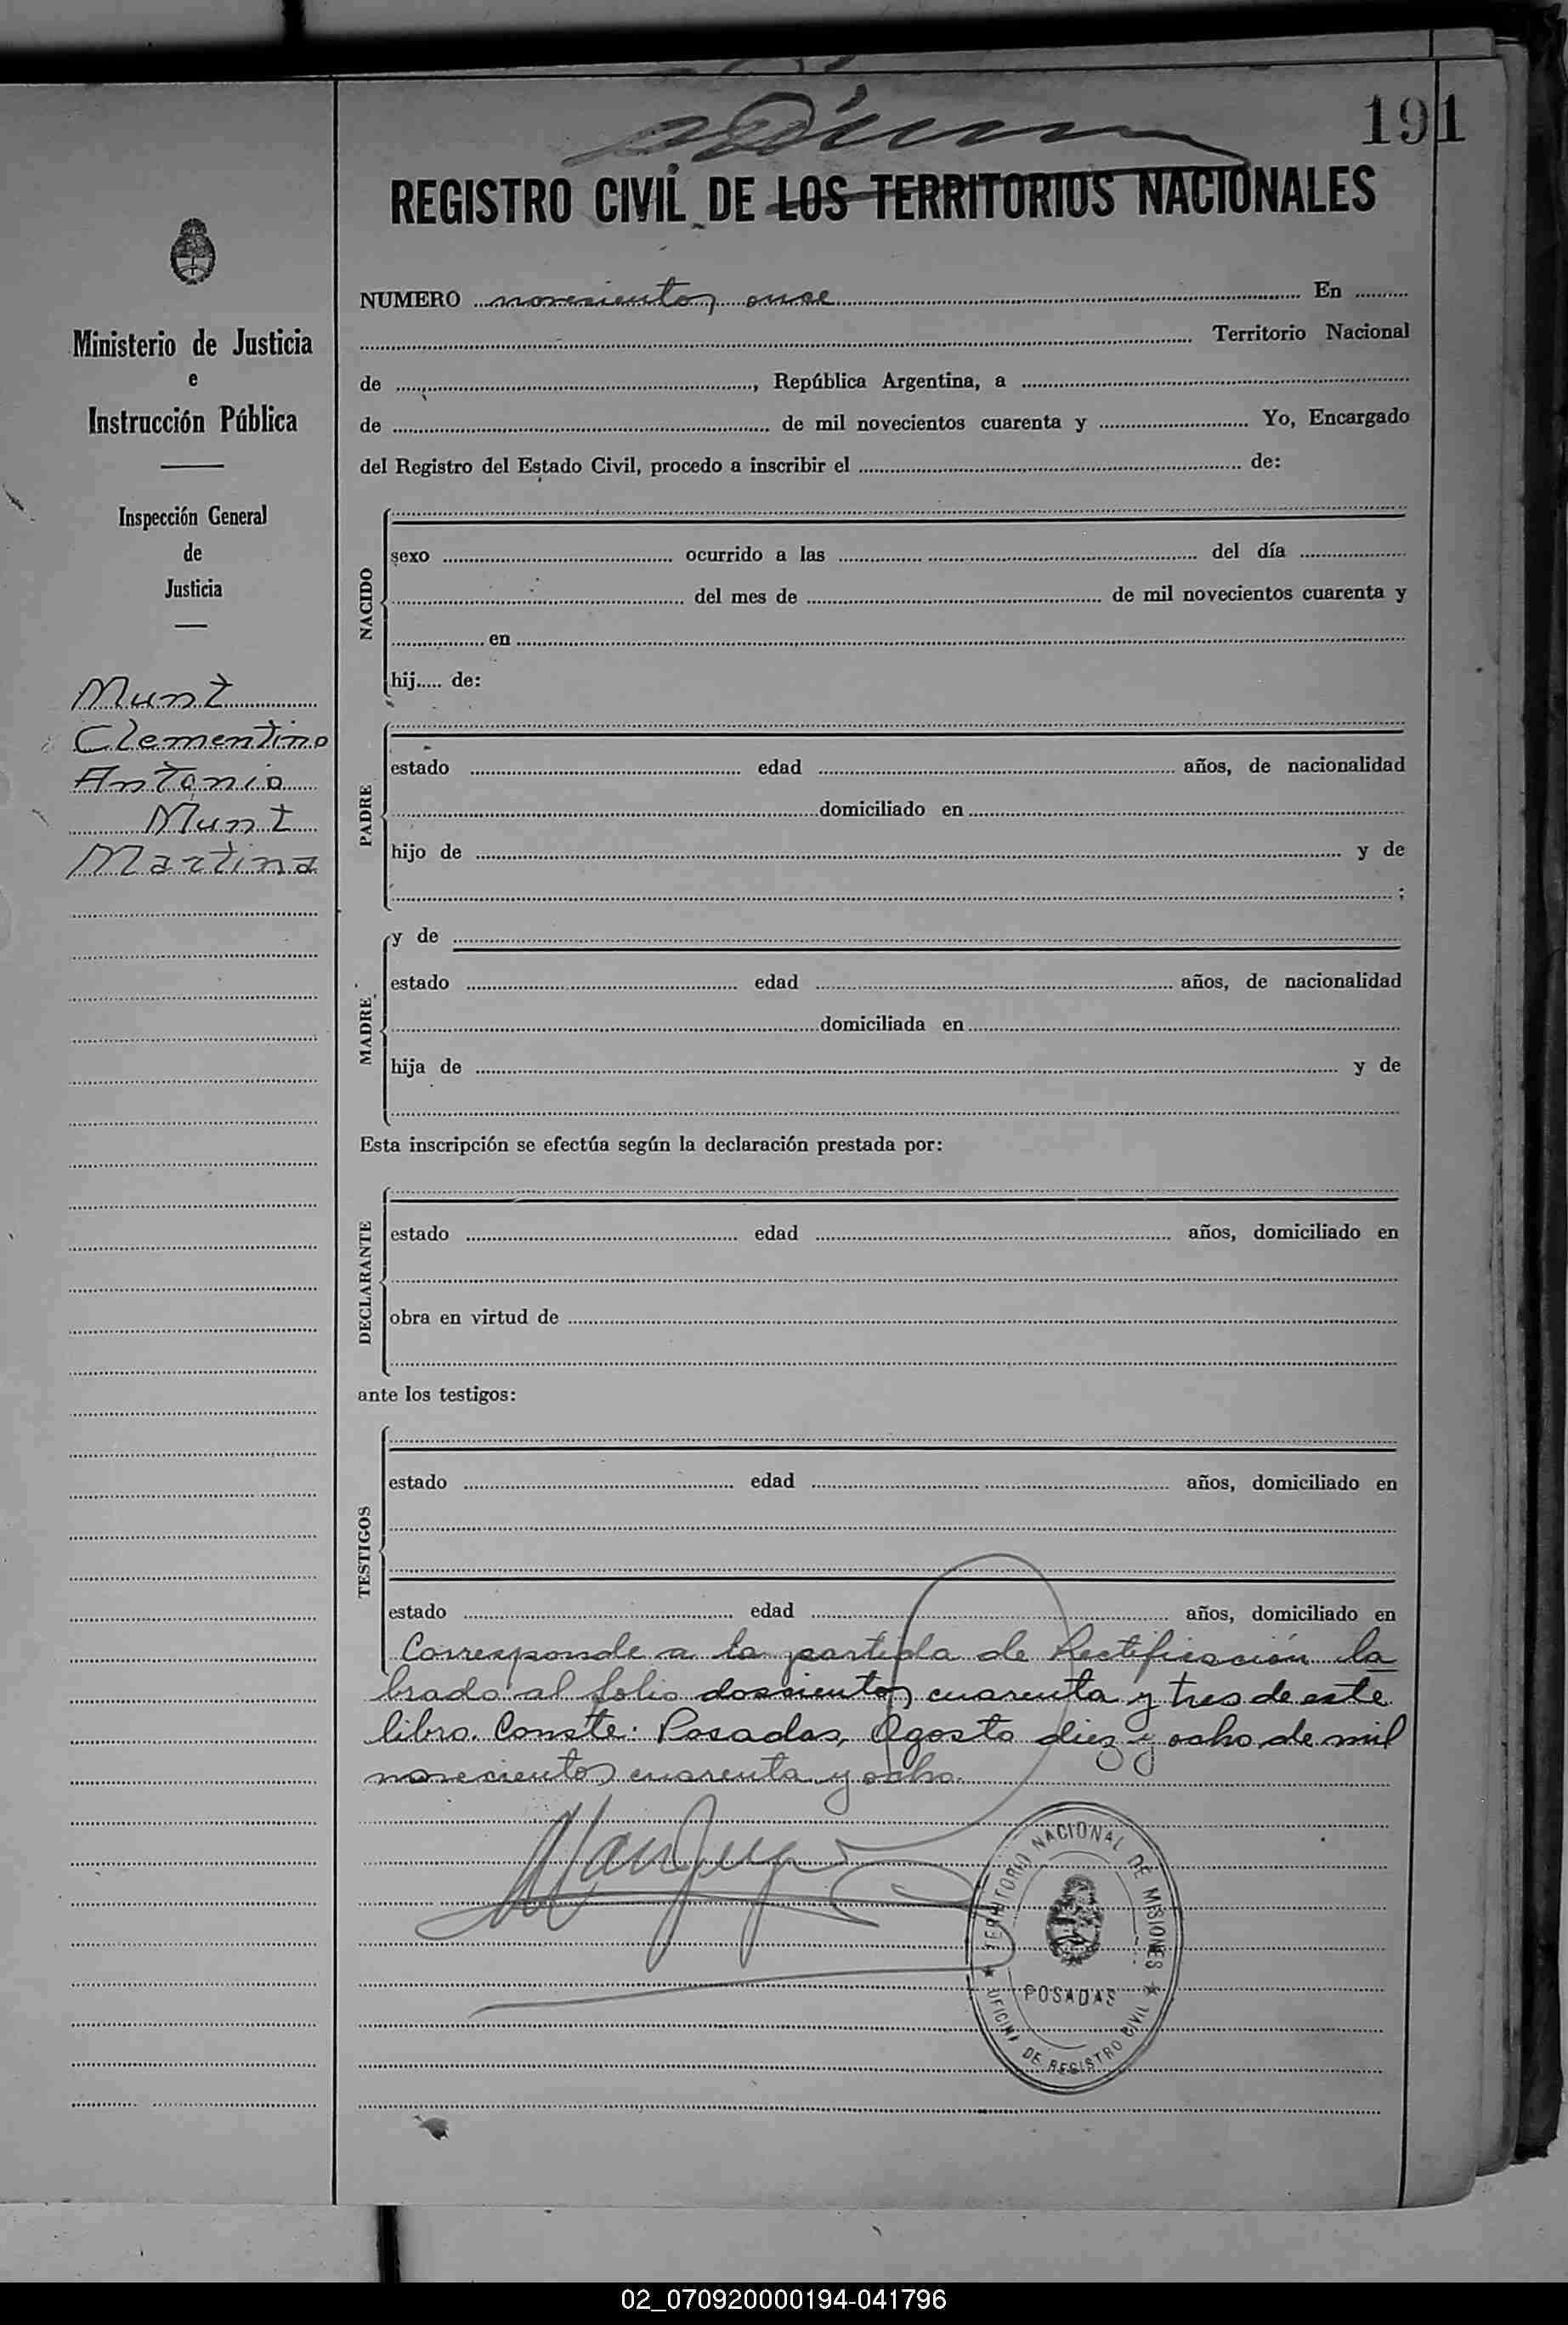 191
REGISTRO CIVIL DE LOS TERRITORIOS NACIONALES
Ministerio de Justicia
e
Instrucción Pública
Inspección General
de
Justicia
Munt
Clementino
Antonio
Munt
Martina
NUMERO novecientos once En
Territorio Nacional
de , República Argentina, a
de de mil novecientos cuarenta y Yo, Encargado
del Registro del Estado Civil, procedo a inscribir el de:
NACIDO
sexo ocurrido a las del día
del mes de de mil novecientos cuarenta y
en
hij..... de:
PADRE
estado edad años, de nacionalidad
domiciliado en
hijo de y de
;
MADRE
y de
estado edad años, de nacionalidad
domiciliada en
hija de y de
Esta inscripción se efectúa según la declaración prestada por:
DECLARANTE
estado edad años, domiciliado en
obra en virtud de
ante los testigos:
TESTIGOS
estado edad años, domiciliado en
estado edad años, domiciliado en
Corresponde a la partida de Rectificación la
brada al folio doscientos cuarenta y tres de este
libro. Conste: Posadas, Agosto diez y ocho de mil
novecientos cuarenta y ocho.
TERRITORIO NACIONAL DE MISIONES
POSADAS
OFICINA DE REGISTRO CIVIL
02_070920000194-041796